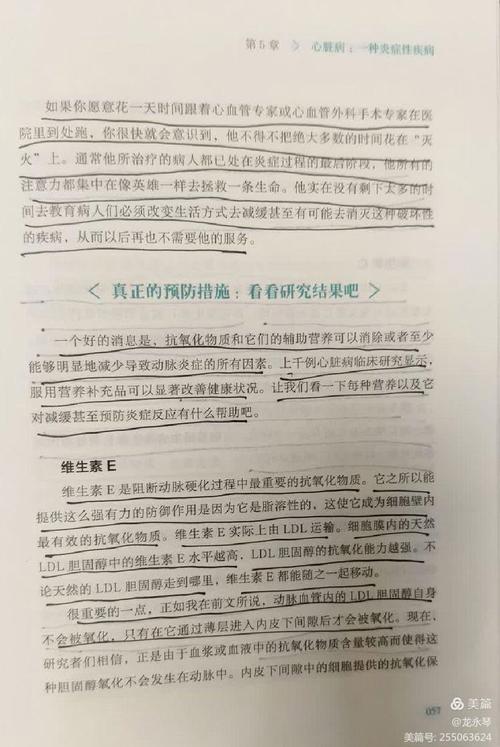 第5章 > 心脏病：一种炎症性疾病
如果你愿意花一天时间跟着心血管专家或心血管外科手术专家在医
院里到处跑，你很快就会意识到，他不得不把绝大多数的时间花在“灭
火”上。通常他所治疗的病人都已处在炎症过程的最后阶段，他所有的
注意力都集中在像英雄一样去拯救一条生命。他实在没有剩下太多的时
间去教育病人们必须改变生活方式去减缓甚至有可能去消灭这种破坏性
的疾病，从而以后再也不需要他的服务。
< 真正的预防措施：看看研究结果吧 >
一个好的消息是，抗氧化物质和它们的辅助营养可以消除或者至少
能够明显地减少导致动脉炎症的所有因素。上千例心脏病临床研究显示，
服用营养补充品可以显著改善健康状况。让我们看一下每种营养以及它
对减缓甚至预防炎症反应有什么帮助吧。
维生素 E
维生素 E 是阻断动脉硬化过程中最重要的抗氧化物质。它之所以能
提供这么强有力的防御作用是因为它是脂溶性的，这使它成为细胞壁内
最有效的抗氧化物质。维生素 E 实际上由 LDL 运输。细胞膜内的天然
LDL 胆固醇中的维生素 E 水平越高，LDL 胆固醇的抗氧化能力越强。不
论天然的 LDL 胆固醇走到哪里，维生素 E 都能随之一起移动。
很重要的一点，正如我在前文所说，动脉血管内的 LDL 胆固醇自身
不会被氧化，只有在它通过薄层进入内皮下间隙后才会被氧化。现在，
研究者们相信，正是由于血浆或血液中的抗氧化物质含量较高而使得这
种胆固醇氧化不会发生在动脉中。内皮下间隙中的细胞提供的抗氧化保
057
美篇
@龙永琴
美篇号: 255063624